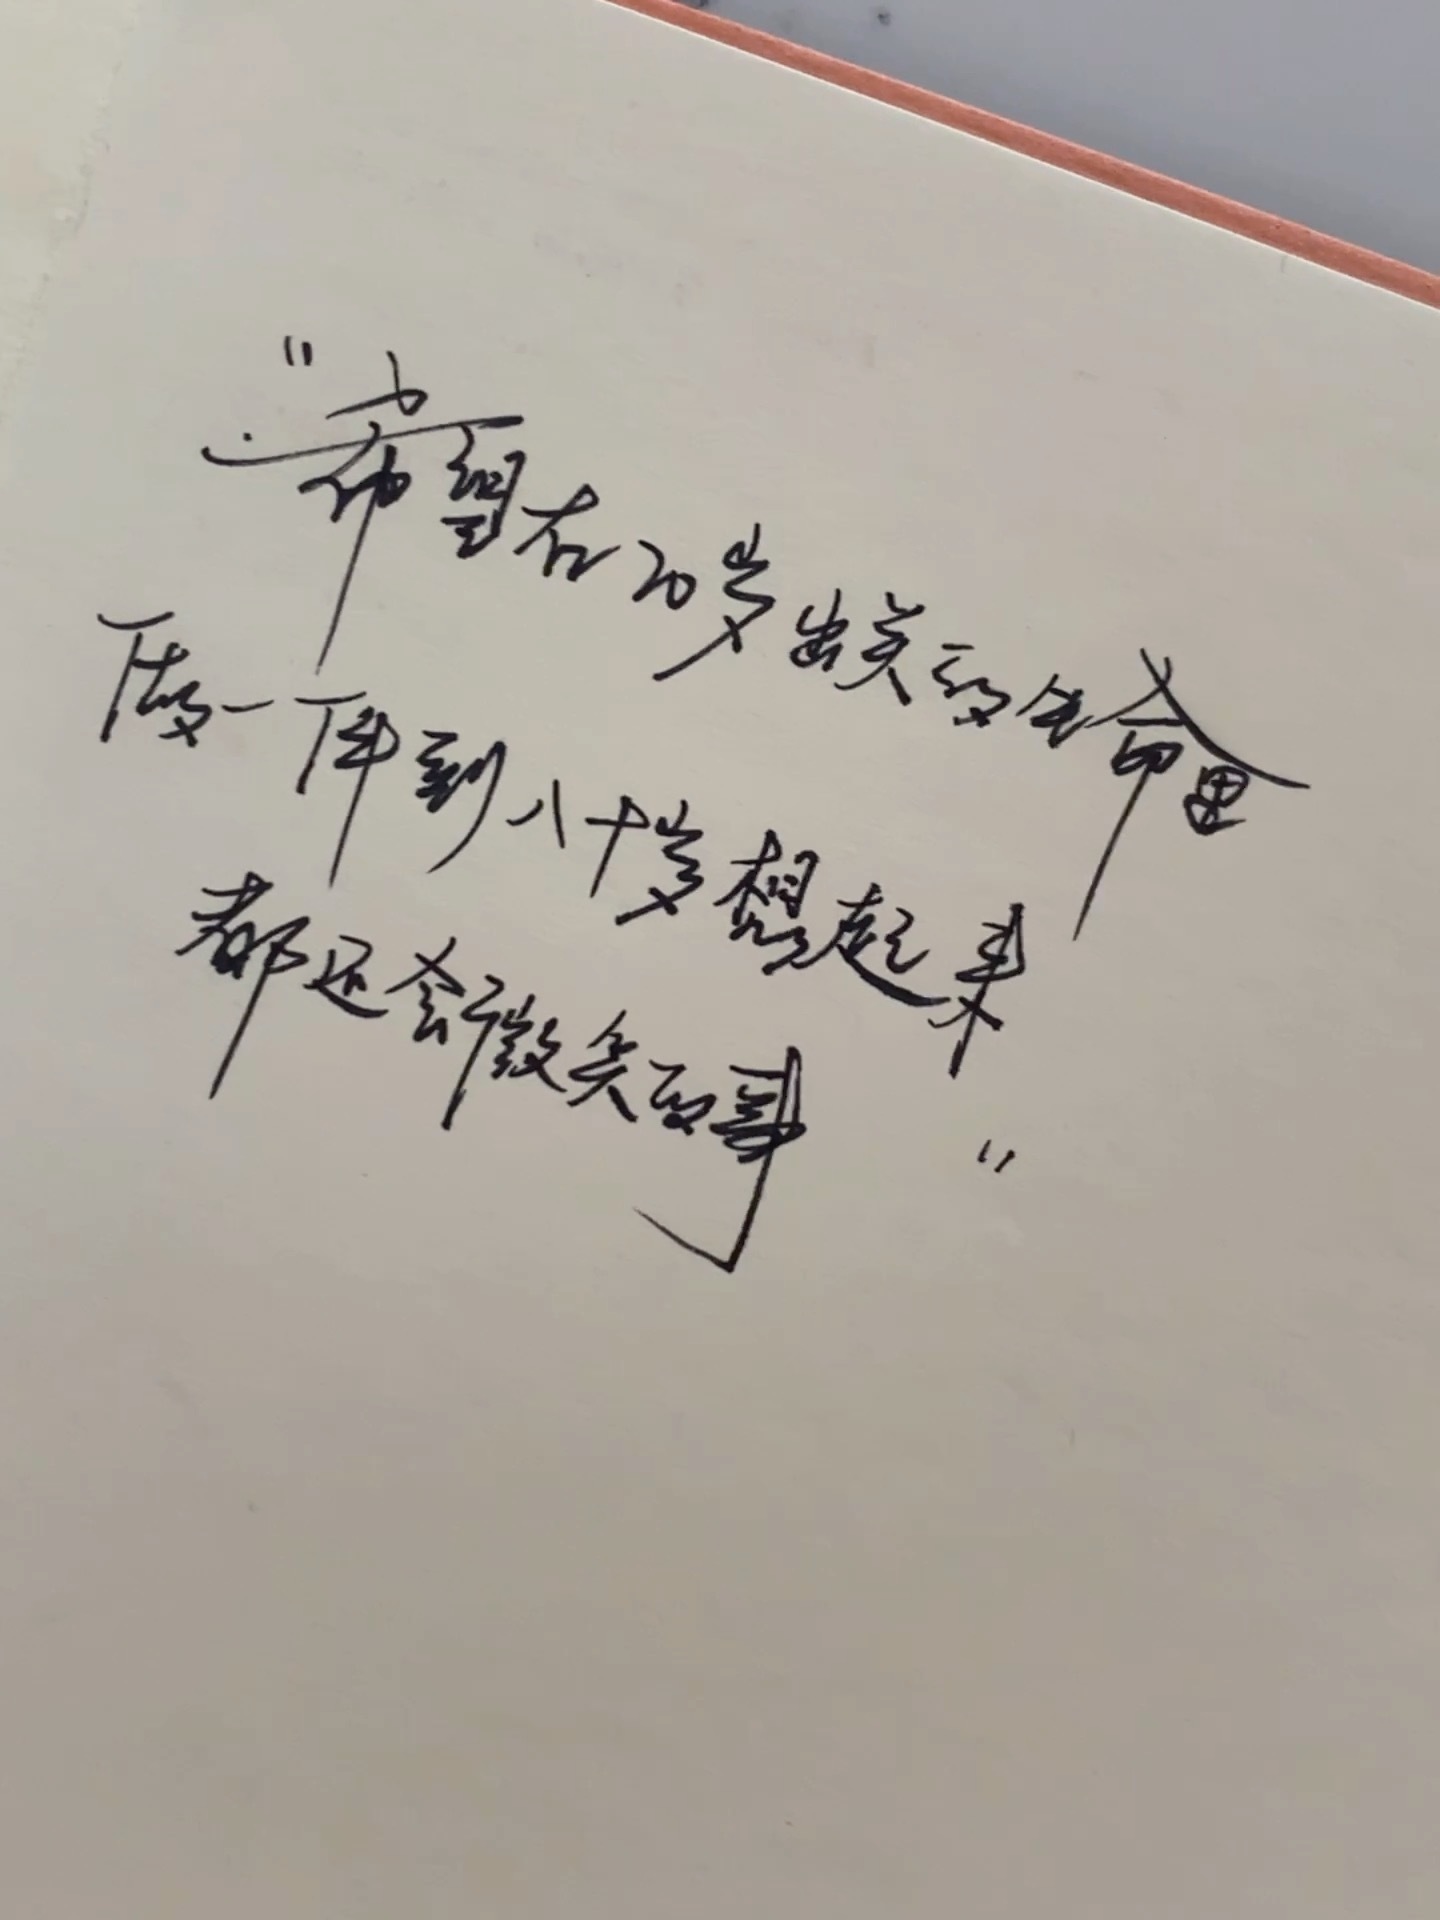 "希望在20岁出头的生命里
做一件到八十岁想起来
都还会微笑的事"